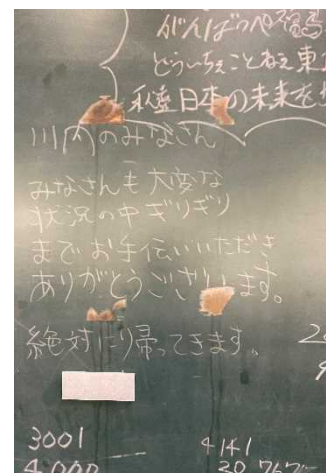 がんばっぺ福島
どういちぇことねぇ東
私達日本の未来を
川内のみなさん
みなさんも大変な
状況の中ギリギリ
までお手伝いいただき
ありがとうございます。
絶対に帰ってきます。
3001
4141
4,000